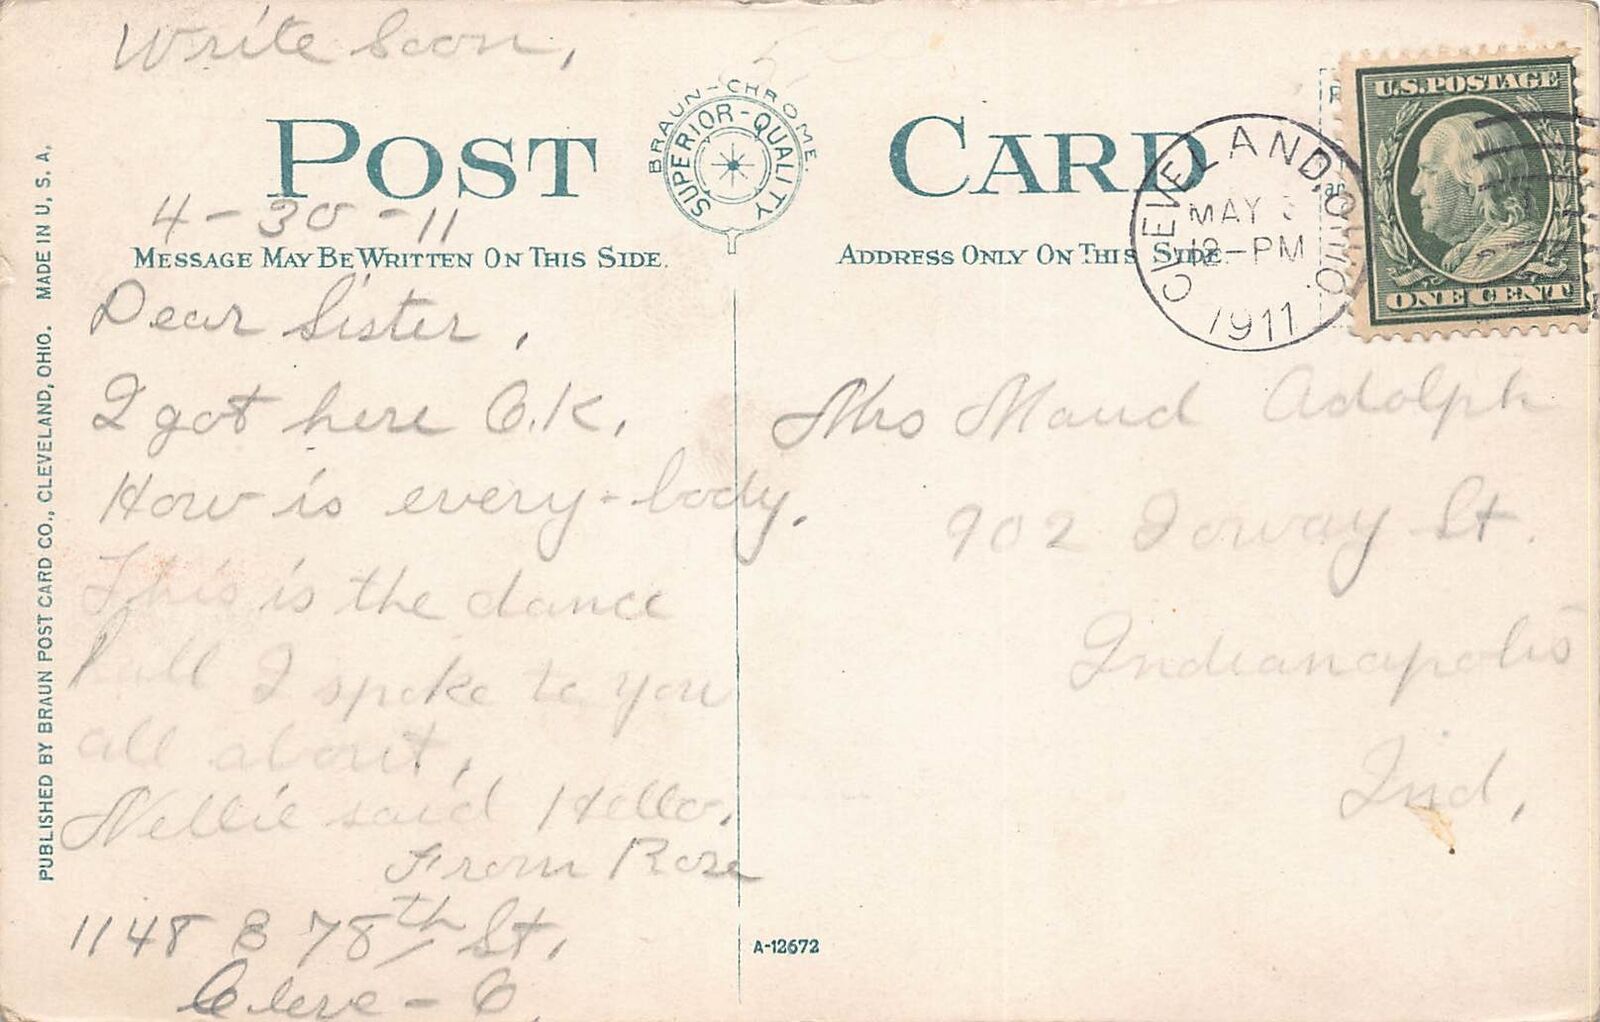 Write Soon,
POST CARD
BRAUN-CHROME
SUPERIOR-QUALITY
4-30-11
MESSAGE MAY BE WRITTEN ON THIS SIDE.
ADDRESS ONLY ON THIS SIDE
CLEVELAND, OHIO.
MAY 3
12-PM
1911
U.S. POSTAGE
ONE CENT
Dear Sister,
I got here O.K.,
How is every-body.
This is the dance
hall I spoke to you
all about,
Nellie said Hello,
From Rose
1148 E 78th St,
Cleve - O,
Mrs Maud Adolph
902 Ioway St.
Indianapolis
Ind,
A-12672
PUBLISHED BY BRAUN POST CARD CO., CLEVELAND, OHIO. MADE IN U. S. A.